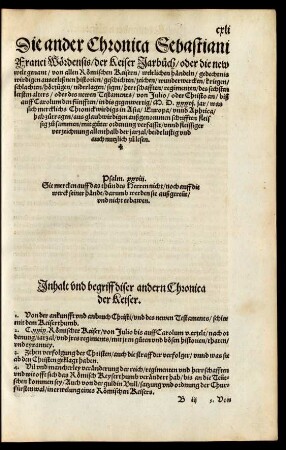 cxli
Die ander Chronica Sebastiani
Franci Wördensis/ der Keiser Jarbůch/ oder die new
welt genant/ von allen Römischen Kaisern/ weltlichen händeln/ gedechtnis
wirdigen außerleßnen historien/ geschichten/ zeichen/ wunderwercken/ kriegen/
schlachten/ hörzügen/ niderlagen/ sigen/ herrschafften/ regimenten/ des sechsten
letsten alters/ oder des newen Testaments/ von Julio/ oder Christo an/ biß
auff Carolum den fünfften/ in dis gegenwertig/ M. D. xxxvj. jar/ was
sich mercklichs Chronickwirdigs in Asia/ Europa/ vnd Aphrica/
hab zůtragen/ aus glaubwirdigen außgenommen schrifften fleis-
sig zůsammen/ mit gůter ordnung verfaßt/ vnnd fleissiger
verzeichnung allenthalb der jarzal/ beide lustig vnd
auch nutzlich zů lesen.
Psalm. xxviij.
Sie mercken auff das thůn des Herren nicht/ noch auff die
werck seiner hände/ darumb werden sie außgereüt/
vnd nicht erbawen.
Inhalt vnd begriff diser andern Chronica
der Keiser.
1. Von der ankunfft vnd anbruch Christi/ vnd des newen Testaments/ schier
mit dem Kaiserthumb.
2. C.xxiv. Römischer Kaiser/ von Julio bis auff Carolum v. erzält/ nach or
denung/ jarzal/ vnd jres regiments/ mit jren gůten vnd bösen historien/ thaten/
vnd tyranney.
3. Zehen verfolgung der Christen/ auch die straff der verfolger/ vnnd was sie
ab den Christen geklagt haben.
4. Vil vnd mancherley veränderung der reich/ regimenten vnd herrschafften
vnd wie offt sich das Römisch Keyserthumb verändert hab/ bis an die Teüt-
schen kommen sey/ Auch von der guldin Bull/ satzung vnd ordnung der Chur-
fürsten wal/ in erwelung eines Römischen Kaisers.
B iij
5. Von